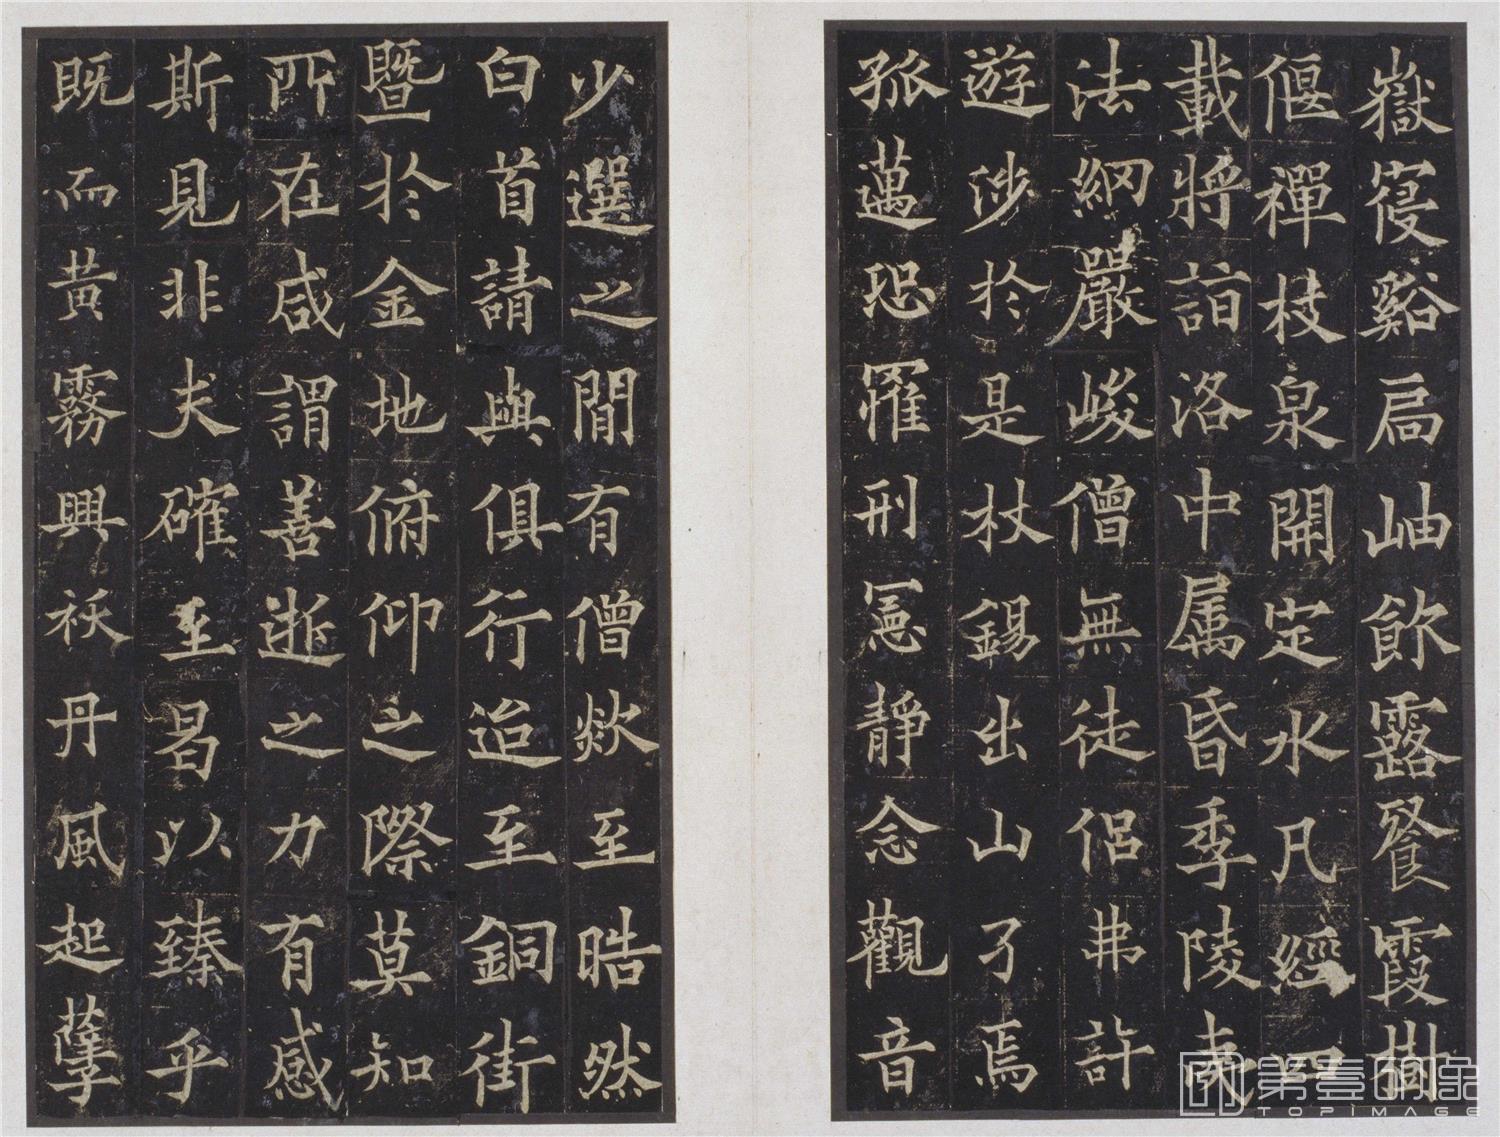 嶽寢谿扃岫飲露餐霞掛
偃禪枝泉開定水凡經四
載將詣洛中属昏季陵夷
法網嚴峻僧無徒侶弗許
遊涉於是杖錫出山孑焉
孤邁恐罹刑憲靜念觀音
少選之間有僧欻至晧然
白首請與俱行迨至銅街
暨於金地俯仰之際莫知
所在咸謂善逝之力有感
斯見非夫確至曷以臻乎
既而黄霧興祅丹風起孽
第壹印象
TOPIMAGE